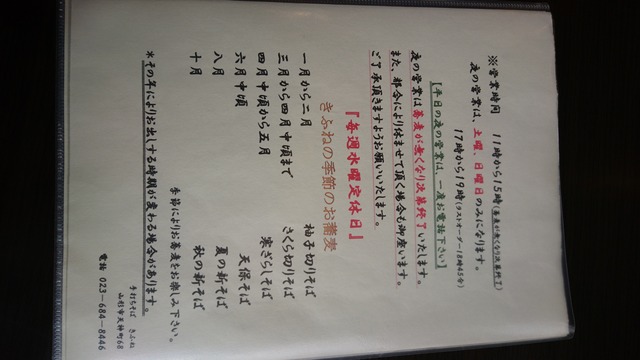 ※営業時間　11時から15時(蕎麦が無くなり次第終了)
夜の営業は、土曜、日曜日のみになります。
17時から19時(ラストオーダー18時45分)
【平日の夜の営業は、一度お電話下さい】
夜の営業は蕎麦が無くなり次第終了いたします。
また、都合により休ませて頂く場合も御座います。
ご了承頂きますようお願いいたします。
『毎週水曜定休日』
きふねの季節のお蕎麦
一月から二月　柚子切りそば
三月から四月中頃まで　さくら切りそば
四月中頃から五月　寒ざらしそば
六月中頃　天保そば
八月　夏の新そば
十月　秋の新そば
季節によりお蕎麦をお楽しみ下さい。
＊その年によりお出しする時期が変わる場合があります。
手打ちそば　きふね
山形市天神町68
電話　023-684-8446